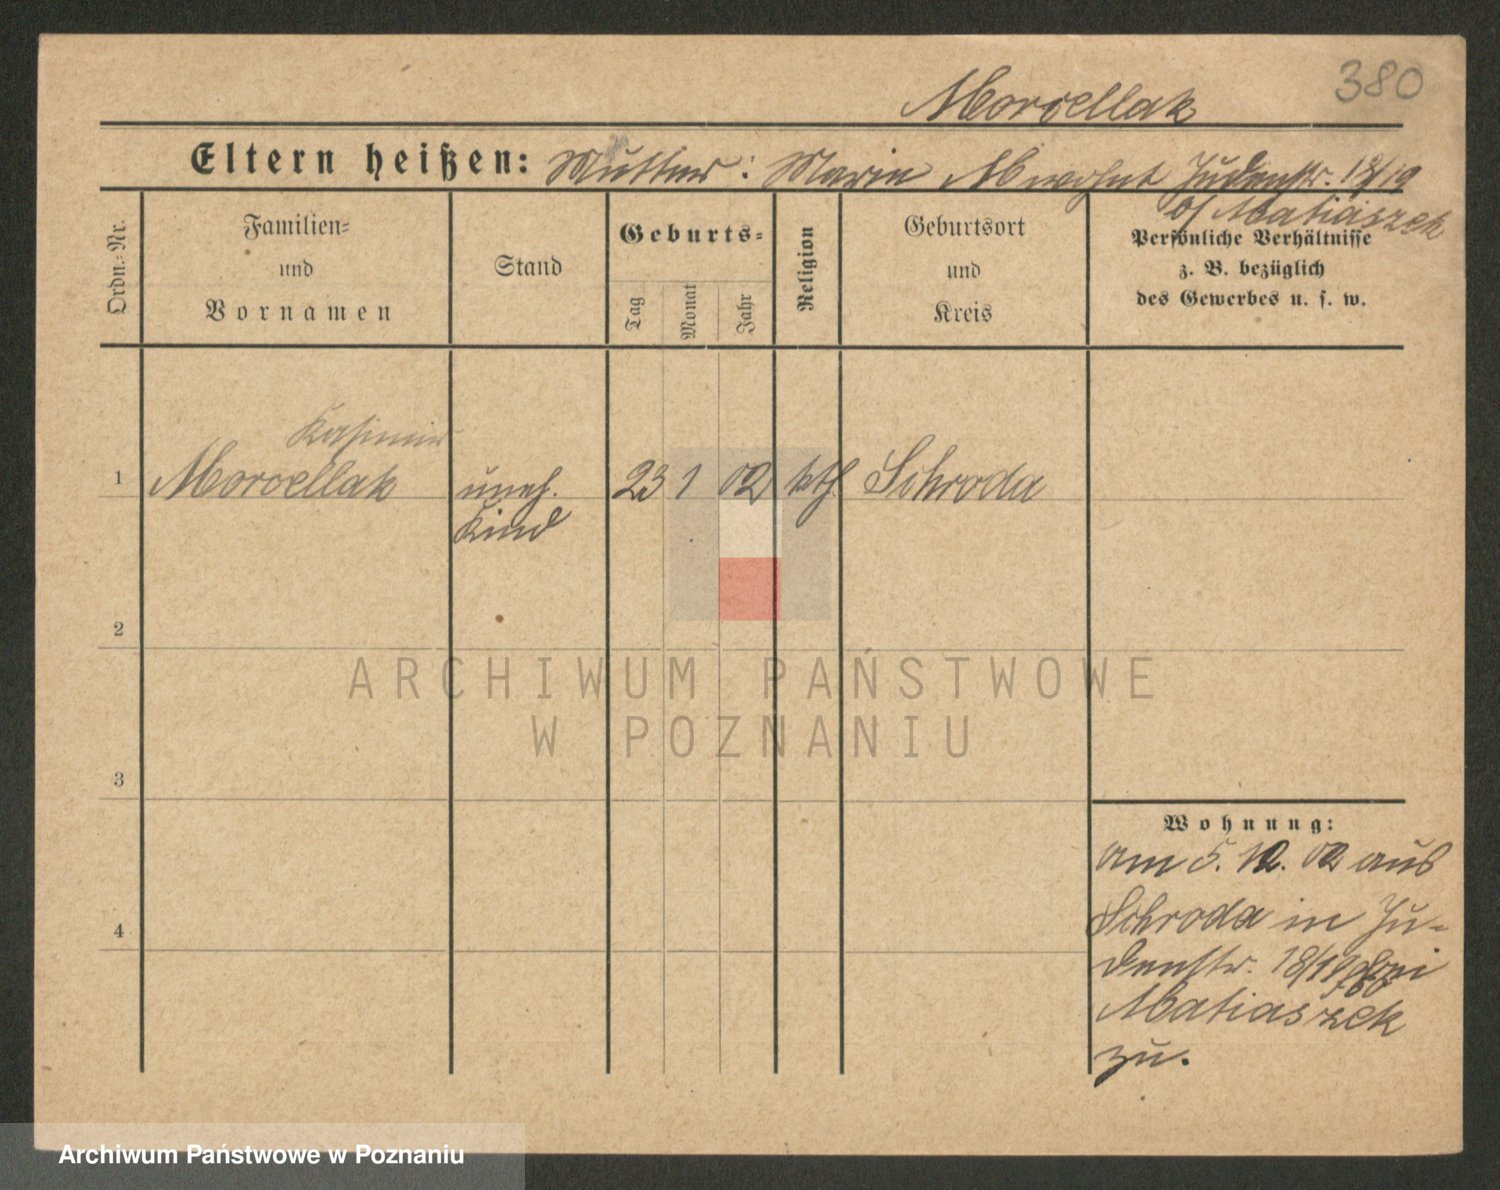 380
Morcellak
Eltern heißen: Mutter: Marie M wohnt Judenstr. 18/19
b/ Matiaszek
Ordn.-Nr.
Familien-
und
Vornamen
Stand
Geburts-
Tag
Monat
Jahr
Religion
Geburtsort
und
Kreis
Persönliche Verhältnisse
z. B. bezüglich
des Gewerbes u. s. w.
Kasimir
1 Morcellak uneh. 23 1 02 kth. Schroda
Kind
2
3
4
Wohnung:
am 5. 12. 02 aus
Schroda in Ju-
denstr. 18/19 bei
Matiaszek
zu.
ARCHIWUM PAŃSTWOWE
W POZNANIU
Archiwum Państwowe w Poznaniu